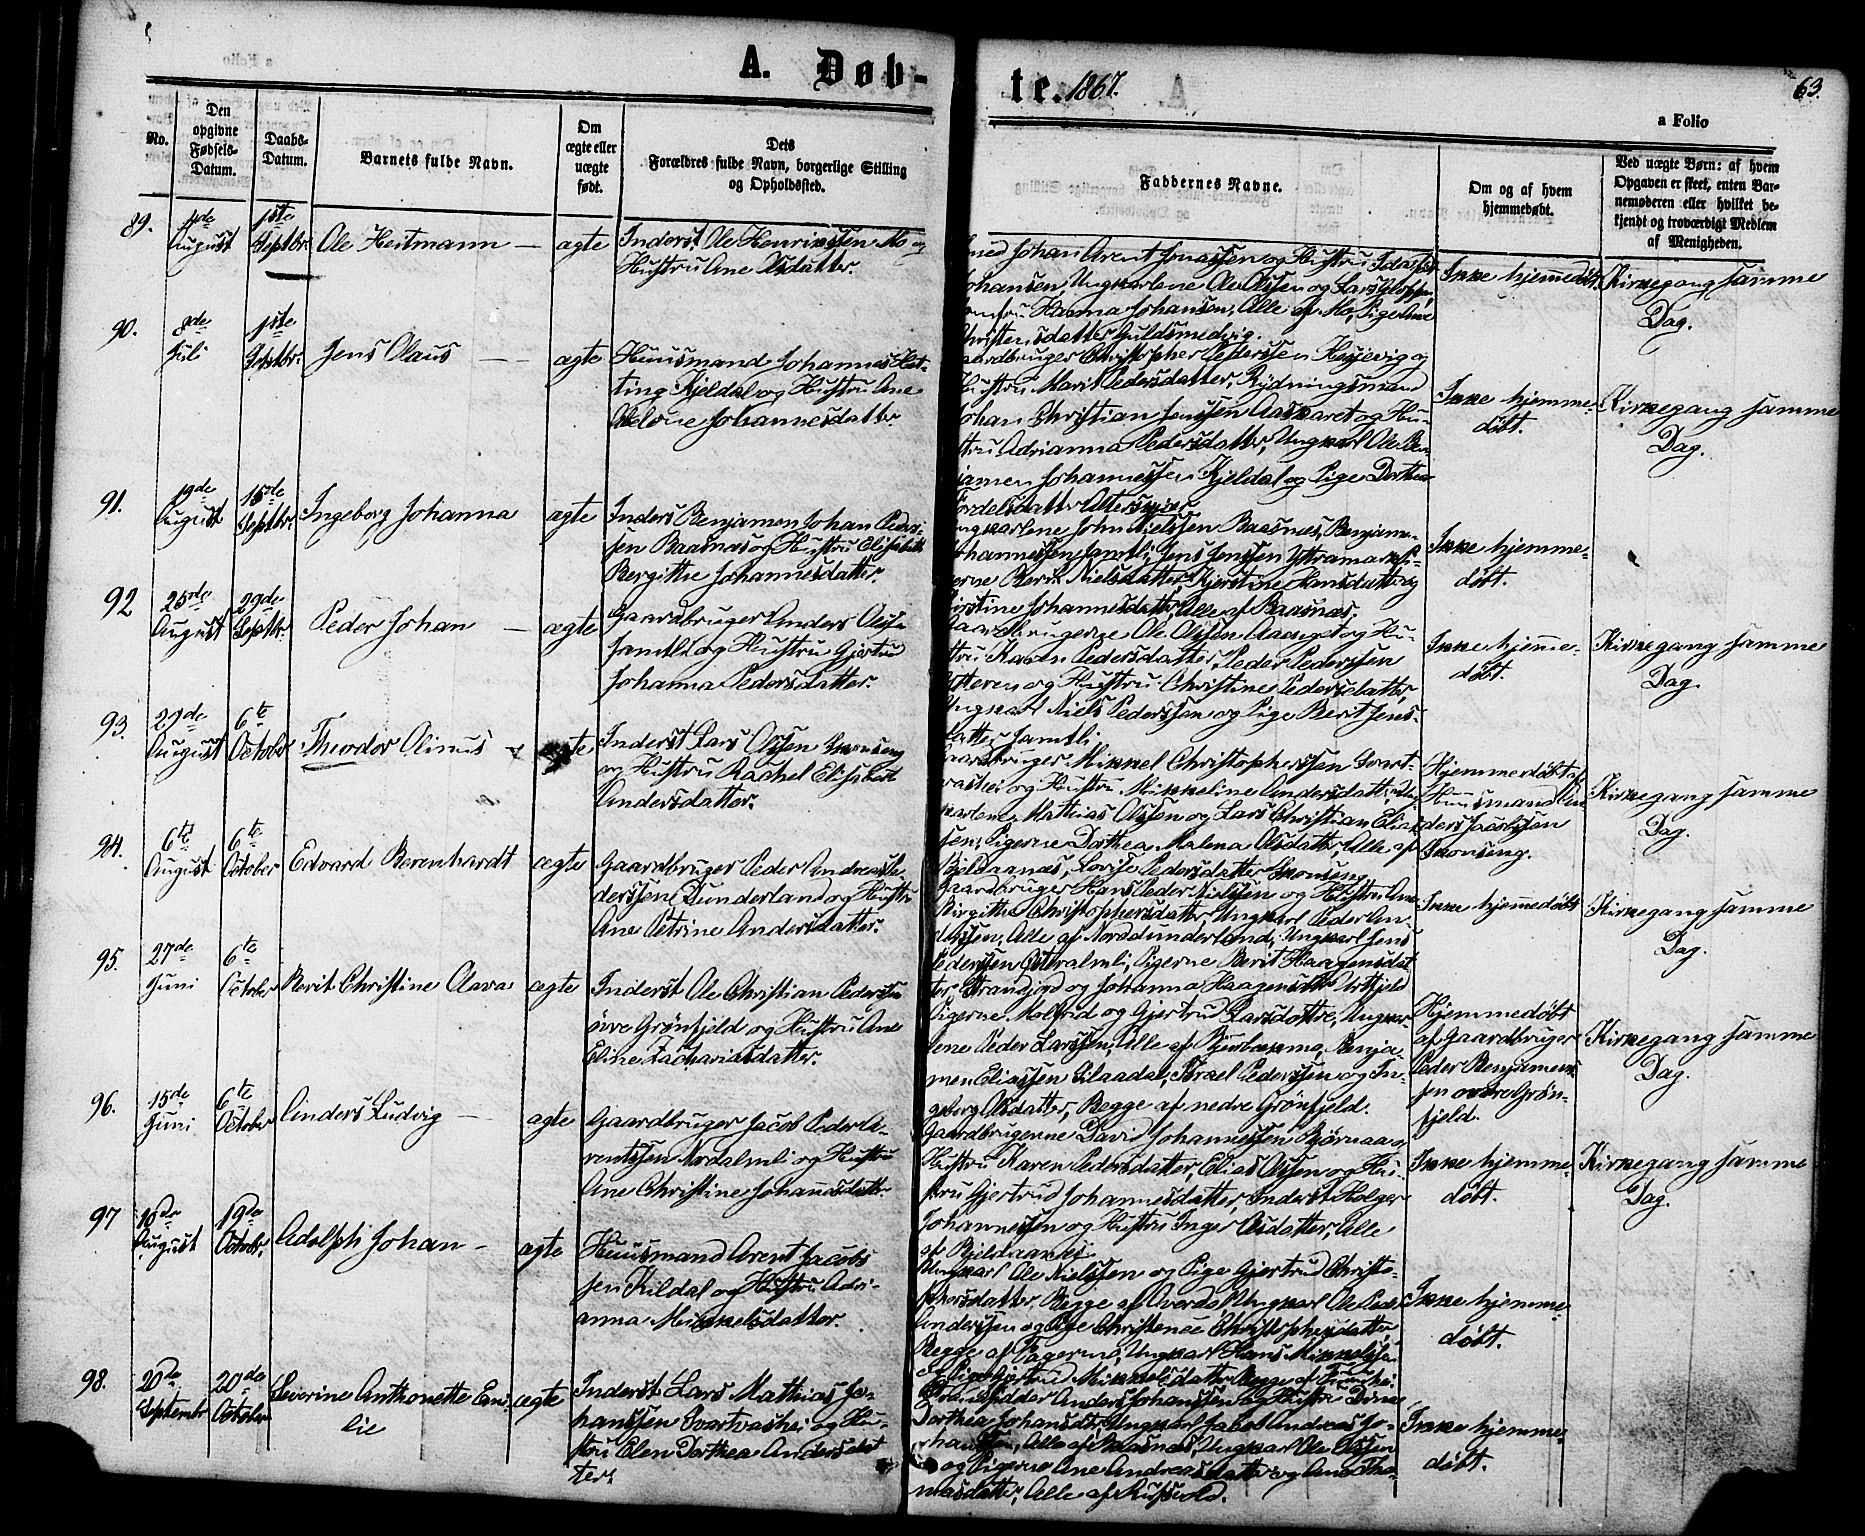 A. Døb-
te. 1867.
63.
a Folio
No.
Den opgivne Fødsels-Datum.
Daabs-Datum.
Barnets fulde Navn.
Om ægte eller uægte født.
Dets Forældres fulde Navn, borgerlige Stilling og Opholdssted.
Faddernes Navne.
Om og af hvem hjemmedøbt.
Ved uægte Børn: af hvem Opgaven er skeet, enten Barnemoderen eller hvilket bekjendt og troværdigt Medlem af Menigheden.
89.
August
1ste Septbr.
Ole Heitmann
ægte
Inderst Ole Henrikssen Mo og
Hustru Ane Olsdatter.
Johan Arent Jonassen og Hustru
Johansen, Ungkarlene Ole Olssen og Lars
Hanna Johansen, Alle af Mo, Pige Ane
Christensdatter Guldsmedvig.
Ikke hjemmedøbt.
Kirkegang samme
Dag.
90.
8de Juli
1ste Septbr.
Jens Olaus
ægte
Huusmand Johannes Het-
ting Kjeldal og Hustru Ane
Johannesdatter.
Gaardbruger Christopher Petterssen Hesjevig og
Hustru Marit Pedersdatter, Rydningsmand
Johan Christian Jenssen Aaskaret og Hu-
stru Adrianna Pedersdatter, Ungkarl Ole Ben-
jamen Johannessen Kjeldal og Pige Dorthea
Ikke hjemme-
døbt.
Kirkegang samme
Dag.
91.
19de August
15de Septbr.
Ingeborg Johanna
ægte
Inderst Benjamen Johan Peder-
sen Baasnæs og Hustru Elisabeth
Bergitte Johannesdatter.
Ungkarlene John Nielssen Baasnæs, Benjamen
Johannessen Jamtli, Jens Jenssen Yttramark, Pi-
gerne Berit Nielsdatter, Kjerstine Hansdatter og
Kirstine Johannesdatter, Alle af Baasnæs.
Ikke hjemme-
døbt.
92
25de August
29de Septbr.
Peder Johan
ægte
Gaardbruger Anders Olss.
Jamtli og Hustru Gjertrud
Johanna Pedersdatter.
Gaardbrugerne Ole Olssen Aanigst og Hu-
stru Karen Pedersdatter, Peder Pederssen
og Hustru Christine Pedersdatter,
Ungkarl Niels Pederssen og Pige Berit Jens-
datter Jamtli.
Ikke hjemme-
døbt.
Kirkegang samme
Dag.
93.
29de August
6te October
Theodor Olinus
ægte
Inderst Lars Olssen Skonseng
og Hustru Rachel Elisabeth
Andersdatter.
Gaardbruger Mikkel Christopherssen Svart-
vashei og Hustru Mikkeline Andersdatter, Ung-
karlene Mathias Olssen og Lars Christian Elias-
sen, Pigerne Dorthea Malena Olsdatter, Alle af
Bjeldaanæs, Lovise Pedersdatter Skonseng.
Hjemmedøbt af
Huusmand An-
ders Jacobssen
Skonseng.
Kirkegang samme
Dag.
94.
6te August
6te October
Edvard Berenhardt
ægte
Gaardbruger Peder Andreas Pe-
derssen Dunderland og Hustru
Ane Petrine Andersdatter.
Gaardbruger Hans Peder Nielssen og Hustru Ane
Birgitha Christophersdatter, Ungkarl Peder An-
derssen, Alle af Norddunderland, Ungkarl Jens
Pederssen, Pigerne Berit Haagensdat-
ter Strandjord og Johanna Haagensdatter
Ikke hjemmedøbt
Kirkegang samme
Dag.
95.
27de Juni
6te October
Berit Christine Olava
ægte
Inderst Ole Christian Pederssen
övre Grönfjeld og Hustru Ane
Eline Zachariasdatter.
Pigerne Molfrid og Gjertrud Larsdøttre, Ungkar-
lene Peder Larssen, Alle af Bjerbækmo, Benja-
men Eliassen Bilaadal, Israel Pederssen og In-
geborg Olsdatter, Begge af nedre Grönfjeld.
Hjemmedöbt
af Gaardbruger
Peder Benjamens-
sen övre Grön-
fjeld.
Kirkegang samme
Dag.
96.
15de Juni
6te October
Anders Ludvig
ægte
Gaardbruger Jacob Peder A-
rentssen Nordalmli og Hustru
Ane Christine Johannesdatter.
Gaardbrugerne David Johannessen Bjørnaa og
Hustru Karen Pedersdatter, Elias Olssen og Hu-
stru Gjertrud Johannesdatter, Inderst Holger
Johannessen og Hustru Inger Olsdatter, Alle
af Bjeldaanæs.
Ikke hjemme-
døbt.
Kirkegang samme
Dag.
97
August
19de Octobr.
Adolph Johan
ægte
Huusmand Arent Jacobs-
sen Kildal og Hustru Adri-
anna Mikkelsdatter.
Ungkarl Ole Nielssen og Pige Gjertrud Christo-
phersdatter, Begge af Averdal, Ungkarl Ole Peder
Anderssen og Pige Christence Christophersdatter,
Begge af Fagermo, Ungkarl Hans Mikkelssen
og Pige Gjertrud Mikkelsdatter, Begge af
Ikke hjemme-
døbt.
98.
20de Septembr
20de October
Severine Anthonette Emi-
lie
ægte
Inderst Lars Mathias Jo-
hanssen Svartvashei og Hu-
stru Elen Dorthea Andersdat-
ter.
Anders Johanssen og Hustru
Dorthea Johansdtr, Ungkarl Jacob Andreas Jo-
hanssen, Alle af Baasnæs, Ungkarl Ole Olssen
og Pigerne Ane Andreasdatter og Ane Tho-
masdatter, Alle af Rufsvold.
Ikke hjemme-
døbt.